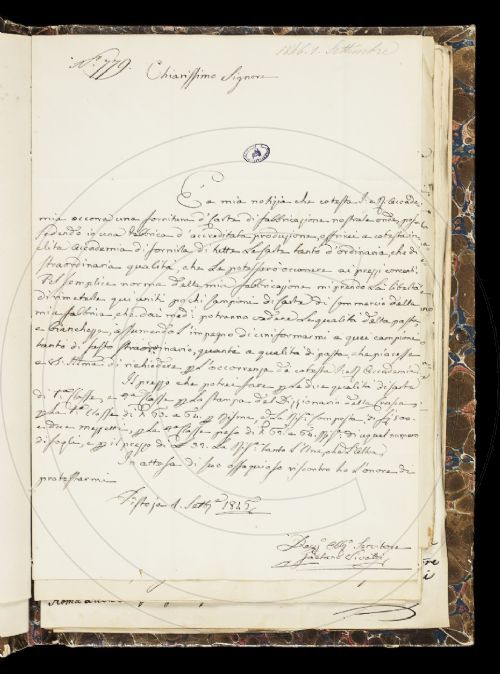 N.° 779.
1846. 1. Settembre
Chiarissimo Signore
È a mia notizia che cotesta I. e R. Accade-
mia occorra una fornitura di Carta di fabbricazione nostrale, onde, pos-
sedendo io una fabbrica d'accreditata produzione, offrirei a cotesta in-
clita Accademia di fornirla di tutte le Carte tanto d'ordinaria, che di
straordinaria qualità, che le potessero occorrere ai prezzi correnti.
Pel semplice norma della mia fabbricazione mi prendo la libertà
di rimetterle qui uniti pochi Campioni di Carta di commercio della
mia fabbrica, che dai medi potranno vedere la qualità della pasta,
e bianchezza, assumendo l'impegno di uniformarmi a quei campioni
tanto di sesto straordinario, quanto a qualità di pasta, che piacesse
a V. S. Illma di richiedere per l'occorrenza di cotesta I. e R. Accademia
Il prezzo che potrei fare per le due qualità di carta
di 1.a Classe, e 2.a Classe per la stampa del Dizionario della Crusca,
per la 1.a Classe di 60. a 62. per Risma
e due mezzetti, per la 2.a Classe peso di di ugual numero
di fogli, e per il prezzo di
In attesa di suo ossequioso riscontro ho l'onore di
protestarmi
Pistoja 1. Sett.e
Dev.o Obb.o Servitore
Gaetano
Roma